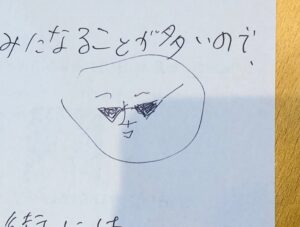 みになることが多いので、